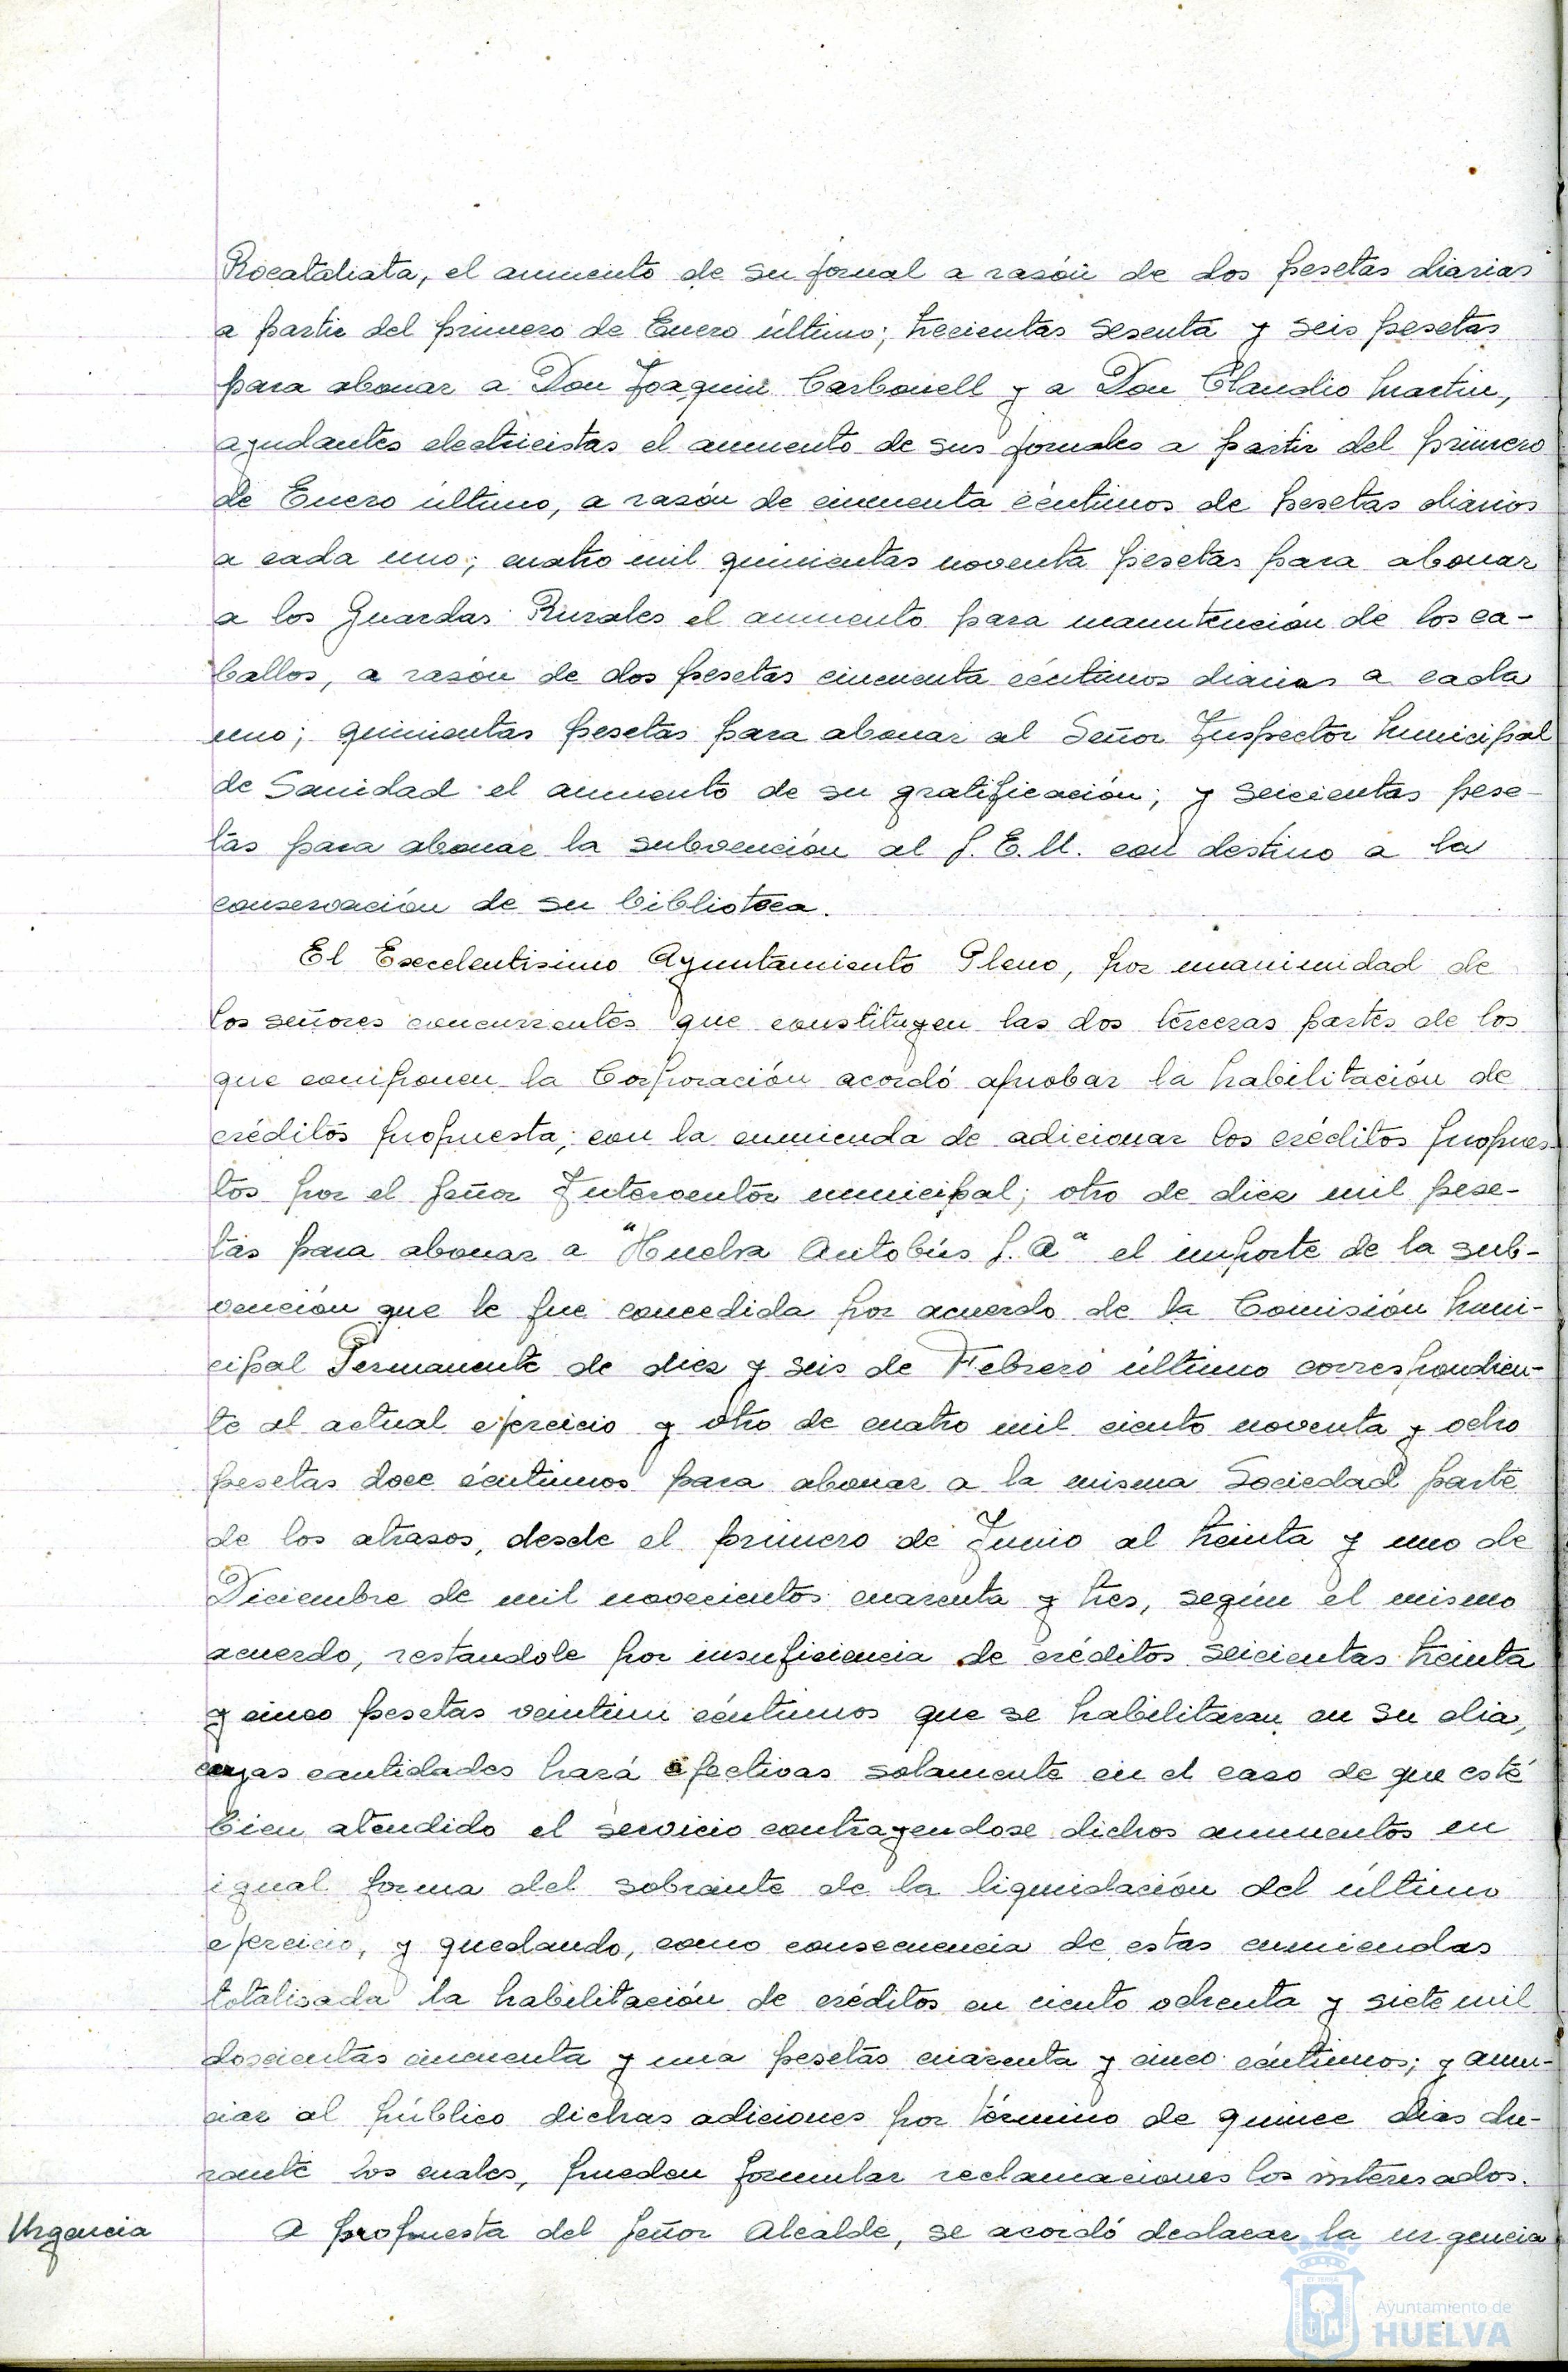 Rocataliata, el aumento de su jornal a rasón de dos pesetas diarias
a partir del primero de Enero último; trecientas sesenta y seis pesetas
para abonar a Don Joaquin Carbonell y a Don Claudio Martin,
ayudantes electricistas el aumento de sus jornales a partir del primero
de Enero último, a rasón de cincuenta céntimos de pesetas diarios
a cada uno; cuatro mil quinientas noventa pesetas para abonar
a los Guardas Rurales el aumento para manutención de los ca-
ballos, a rasón de dos pesetas cincuenta céntimos diarias a cada
uno; quinientas pesetas para abonar al Señor Inspector Municipal
de Sanidad el aumento de su gratificación; y seicientas pese-
tas para abonar la subvención al S.E.U. con destino a la
conservación de su biblioteca.
El Excelentisimo Ayuntamiento Pleno, por unanimidad de
los señores concurrentes que constituyen las dos terceras partes de los
que componen la Corporación acordó aprobar la habilitación de
créditos propuesta; con la enmienda de adicionar los créditos propues-
tos por el Señor Interventor municipal; otro de diez mil pese-
tas para abonar a "Huelva Autobús S. A" el importe de la sub-
vención que le fue concedida por acuerdo de la Comisión Muni-
cipal Permanente de diez y seis de Febrero último correspondien-
te al actual ejercicio y otro de cuatro mil ciento noventa y ocho
pesetas doce céntimos para abonar a la misma Sociedad parte
de los atrasos, desde el primero de Junio al treinta y uno de
Diciembre de mil novecientos cuarenta y tres, según el mismo
acuerdo, restandole por insuficiencia de créditos seicientas treinta
y cinco pesetas veintiun céntimos que se habilitaran en su dia,
cuyas cantidades hará efectivas solamente en el caso de que esté
bien atendido el servicio contrayendose dichos aumentos en
igual forma del sobrante de la liquidación del último
ejercicio, y quedando, como consecuencia de estas enmiendas
totalisada la habilitación de créditos en ciento ochenta y siete mil
doscientas cincuenta y una pesetas cuarenta y cinco céntimos; y anun-
ciar al público dichas adiciones por término de quince dias du-
rante los cuales, pueden formular reclamaciones los interesados.
Urgencia A propuesta del Señor Alcalde, se acordó declarar la urgencia
Ayuntamiento de
HUELVA